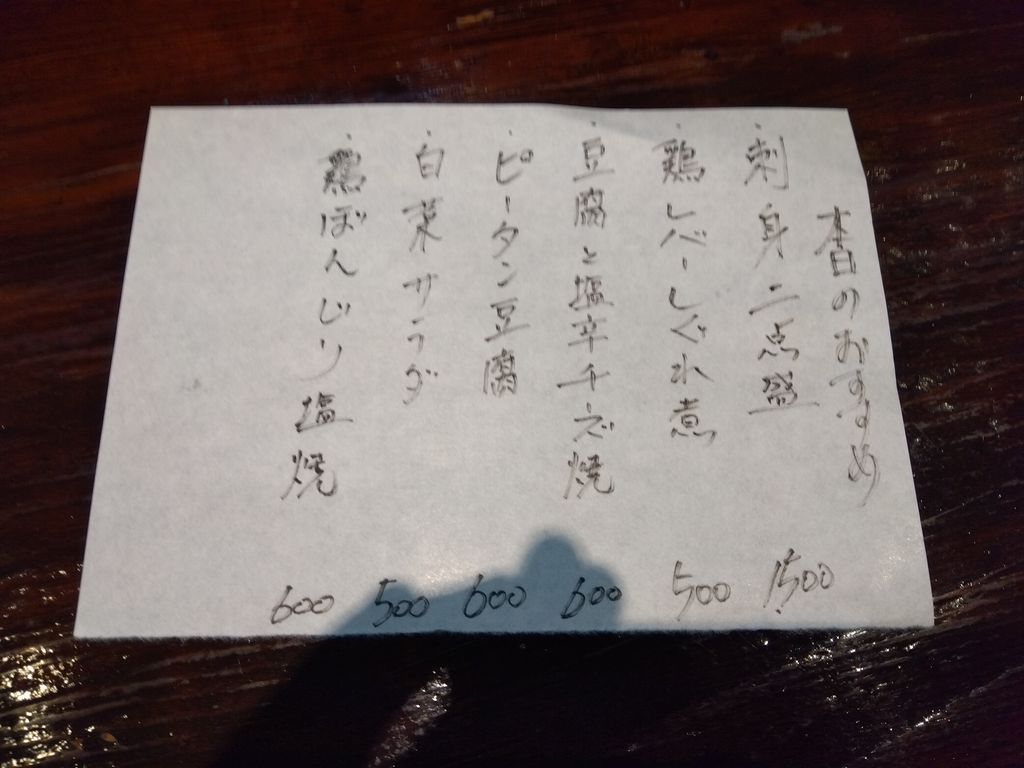 本日のおすすめ
・刺身二点盛 1500
・鶏レバーしぐれ煮 500
・豆腐と塩辛チーズ焼 600
・ピータン豆腐 600
・白菜サラダ 500
・鶏ぼんじり塩焼 600